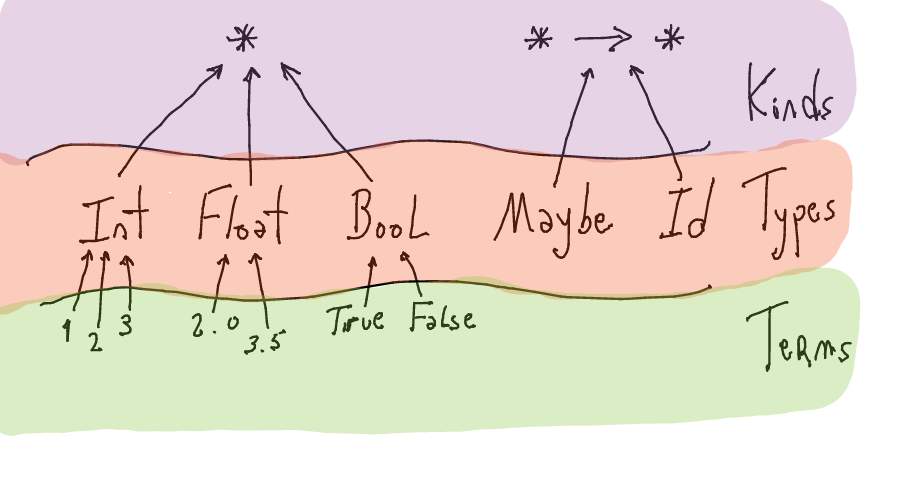 * * → *
Kinds
Int Float Bool Maybe Id Types
1 2 3 2.0 3.5 True False
Terms